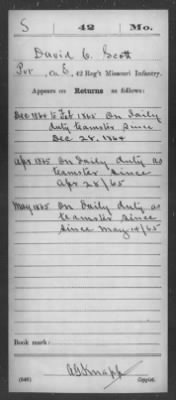 S 42 Mo.
David C. Scott
Pvt, Co. E, 42 Reg't Missouri Infantry.
Appears on Returns as follows:
Dec 1864 to Feb 1865 On daily
duty teamster since
Dec 28. 1864
Apr 1865 On daily duty as
teamster since
Apr 28/65
May 1865 On daily duty as
teamster since
since May 14/65
Book mark:
(546) Copyist.